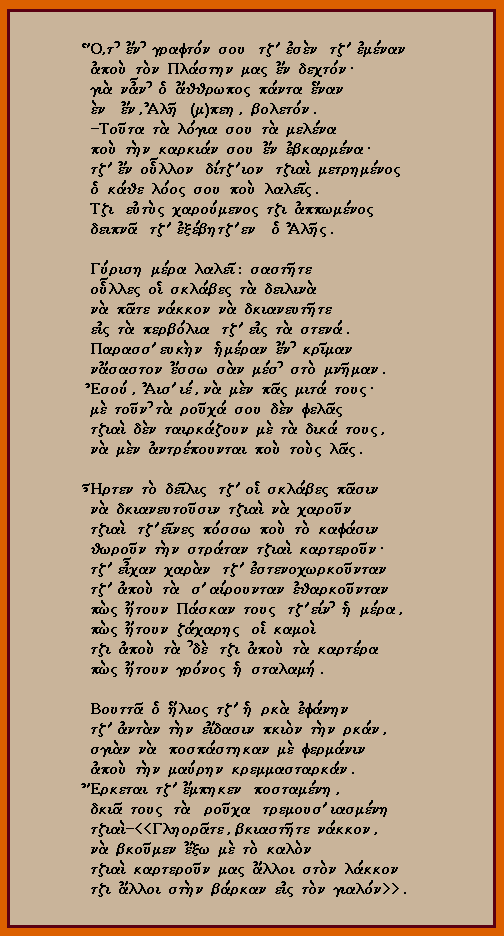 Ὅ,τ᾽ ἔν᾽ γραφτόν σου τζ᾽ ἐσὲν τζ᾽ ἐμέναν
ἀποὺ τὸν Πλάστην μας ἔν δεχτόν·
γιὰ νἆν᾽ ὁ ἄθθρωπος πάντα ἕναν
ἐν ἔν, Ἀλῆ (μ)πεη, βολετόν.
–Τοῦτα τὰ λόγια σου τὰ μελένα
ποὺ τὴν καρκιάν σου ἔν ἐβκαρμένα·
τζ᾽ ἔν οὗλλον δίτζ᾽ιον τζιαὶ μετρημένος
ὁ κάθε λόος σου ποὺ λαλεῖς.
Τζι εὐτὺς χαρούμενος τζι ἀππωμένος
δειπνᾶ τζ᾽ ἐξέβητζ᾽εν ὁ Ἀλῆς.

Γύριση μέρα λαλεῖ: σαστῆτε
οὗλλες οἱ σκλάβες τὰ δειλινὰ
νὰ πᾶτε νάκκον νὰ δκιανευτῆτε
εἰς τὰ περβόλια τζ᾽ εἰς τὰ στενά.
Παρασσ᾽ευκὴν ἡμέραν ἔν᾽ κρῖμαν
νἄσαστον ἔσσω σὰν μέσ᾽ στὸ μνῆμαν.
Ἐσού, Ἀισ᾽ιέ, νὰ μὲν πᾶς μιτά τους·
μὲ τοῦν᾽ τὰ ροῦχά σου δὲν φελᾶς
τζιαὶ δὲν ταιρκάζουν μὲ τὰ δικά τους,
νὰ μὲν ἀντρέπουνται ποὺ τοὺς λᾶς.

Ἦρτεν τὸ δεῖλις τζ᾽ οἱ σκλάβες πᾶσιν
νὰ δκιανευτοῦσιν τζιαὶ νὰ χαροῦν
τζιαὶ τζ᾽εῖνες πόσσω ποὺ τὸ καφάσιν
θωροῦν τὴν στράταν τζιαὶ καρτεροῦν·
τζ᾽ εἶχαν χαρὰν τζ᾽ ἐστενοχωρκοῦνταν
τζ᾽ ἀποὺ τὰ σ᾽αίρουνταν ἐθαρκοῦνταν
πὼς ἤτουν Πάσκαν τους τζ᾽είν᾽ ἡ μέρα,
πὼς ἤτουν ζάχαρης οἱ καμοὶ
τζι ἀποὺ τὰ ᾽δὲ τζι ἀποὺ τὰ καρτέρα
πὼς ἤτουν γρόνος ἡ σταλαμή.

Βουττᾶ ὁ ἥλιος τζ᾽ ἡ ρκὰ ἐφάνην
τζ᾽ ἀντὰν τὴν εἴδασιν πκιὸν τὴν ρκάν,
σγιὰν νὰ ποσπάστηκαν μὲ φερμάνιν
ἀποὺ τὴν μαύρην κρεμμασταρκάν.
Ἔρκεται τζ᾽ ἔμπηκεν ποσταμένη,
δκιᾶ τους τὰ ροῦχα τρεμουσ᾽ιασμένη
τζιαὶ–<<Γληορᾶτε, βκιαστῆτε νάκκον,
νὰ βκοῦμεν ἔξω μὲ τὸ καλὸν
τζιαὶ καρτεροῦν μας ἄλλοι στὸν λάκκον
τζι ἄλλοι στὴν βάρκαν εἰς τὸν γιαλόν>>.